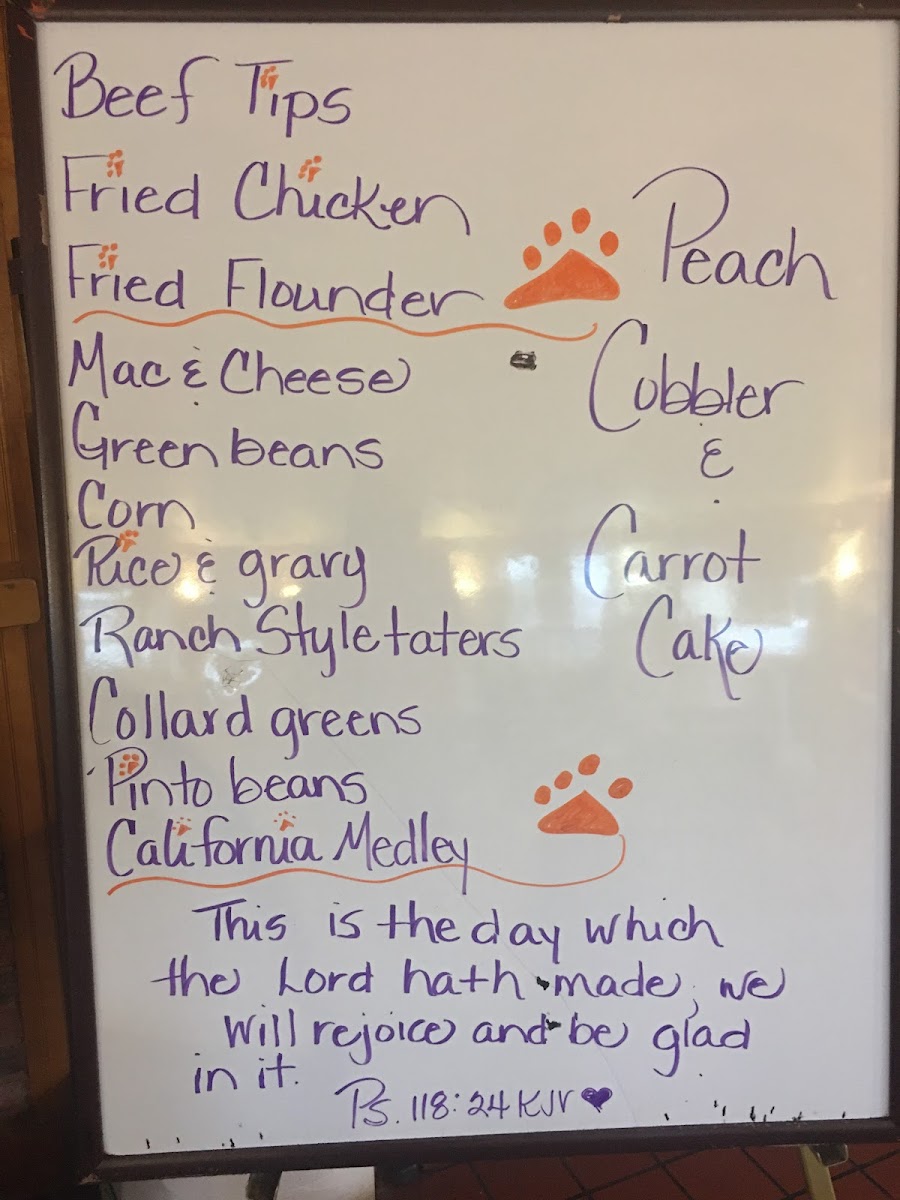 Beef Tips
Fried Chicken
Fried Flounder
Mac & Cheese
Green beans
Corn
Rice & gravy
Ranch Style taters
Collard greens
Pinto beans
California Medley
Peach
Cobbler
&
Carrot
Cake
This is the day which
the Lord hath made, we
will rejoice and be glad
in it.
Ps. 118:24 KJV